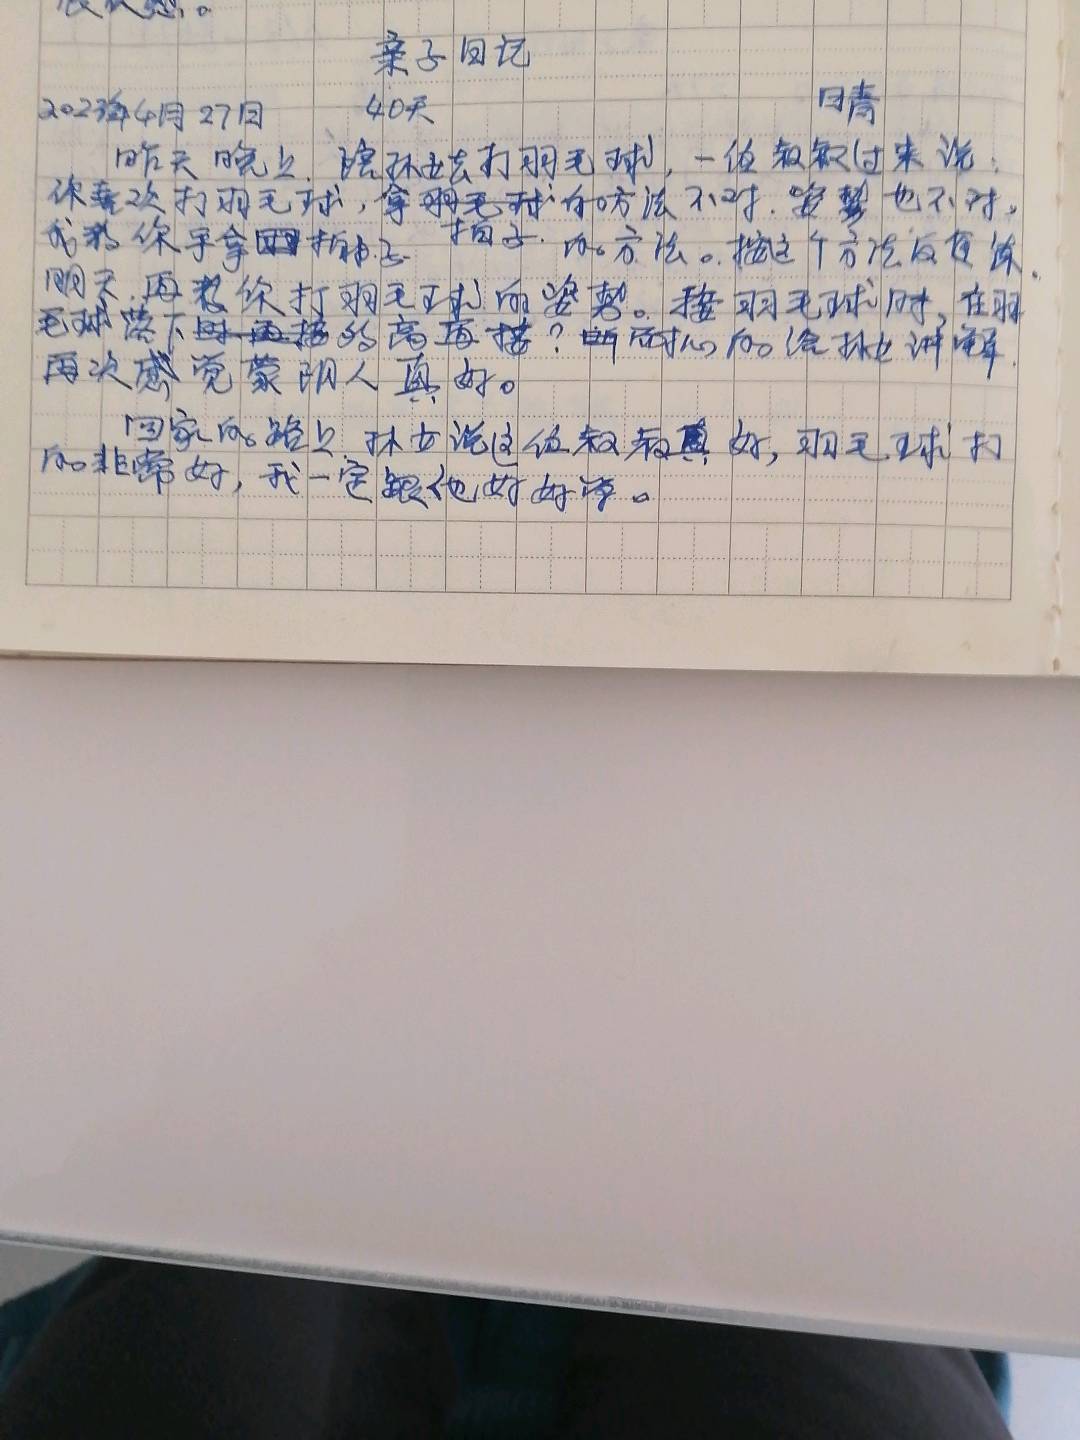 亲子日记
2023年4月27日 40天 日青
昨天晚上,陪孙女去打羽毛球,一位叔叔过来说:
你每次打羽毛球,拿羽毛球的方法不对.姿势也不对。
我教你手拿拍子 拍子.的方法。按这个方法反复练.
明天.再教你打羽毛球的姿势。接羽毛球时,在羽
毛球落下的高再接?耐心的给孙女讲解.
再次感觉蒙阴人真好。
回家的路上.孙女说这位叔叔真好,羽毛球打
的非常好,我一定跟他好好学。